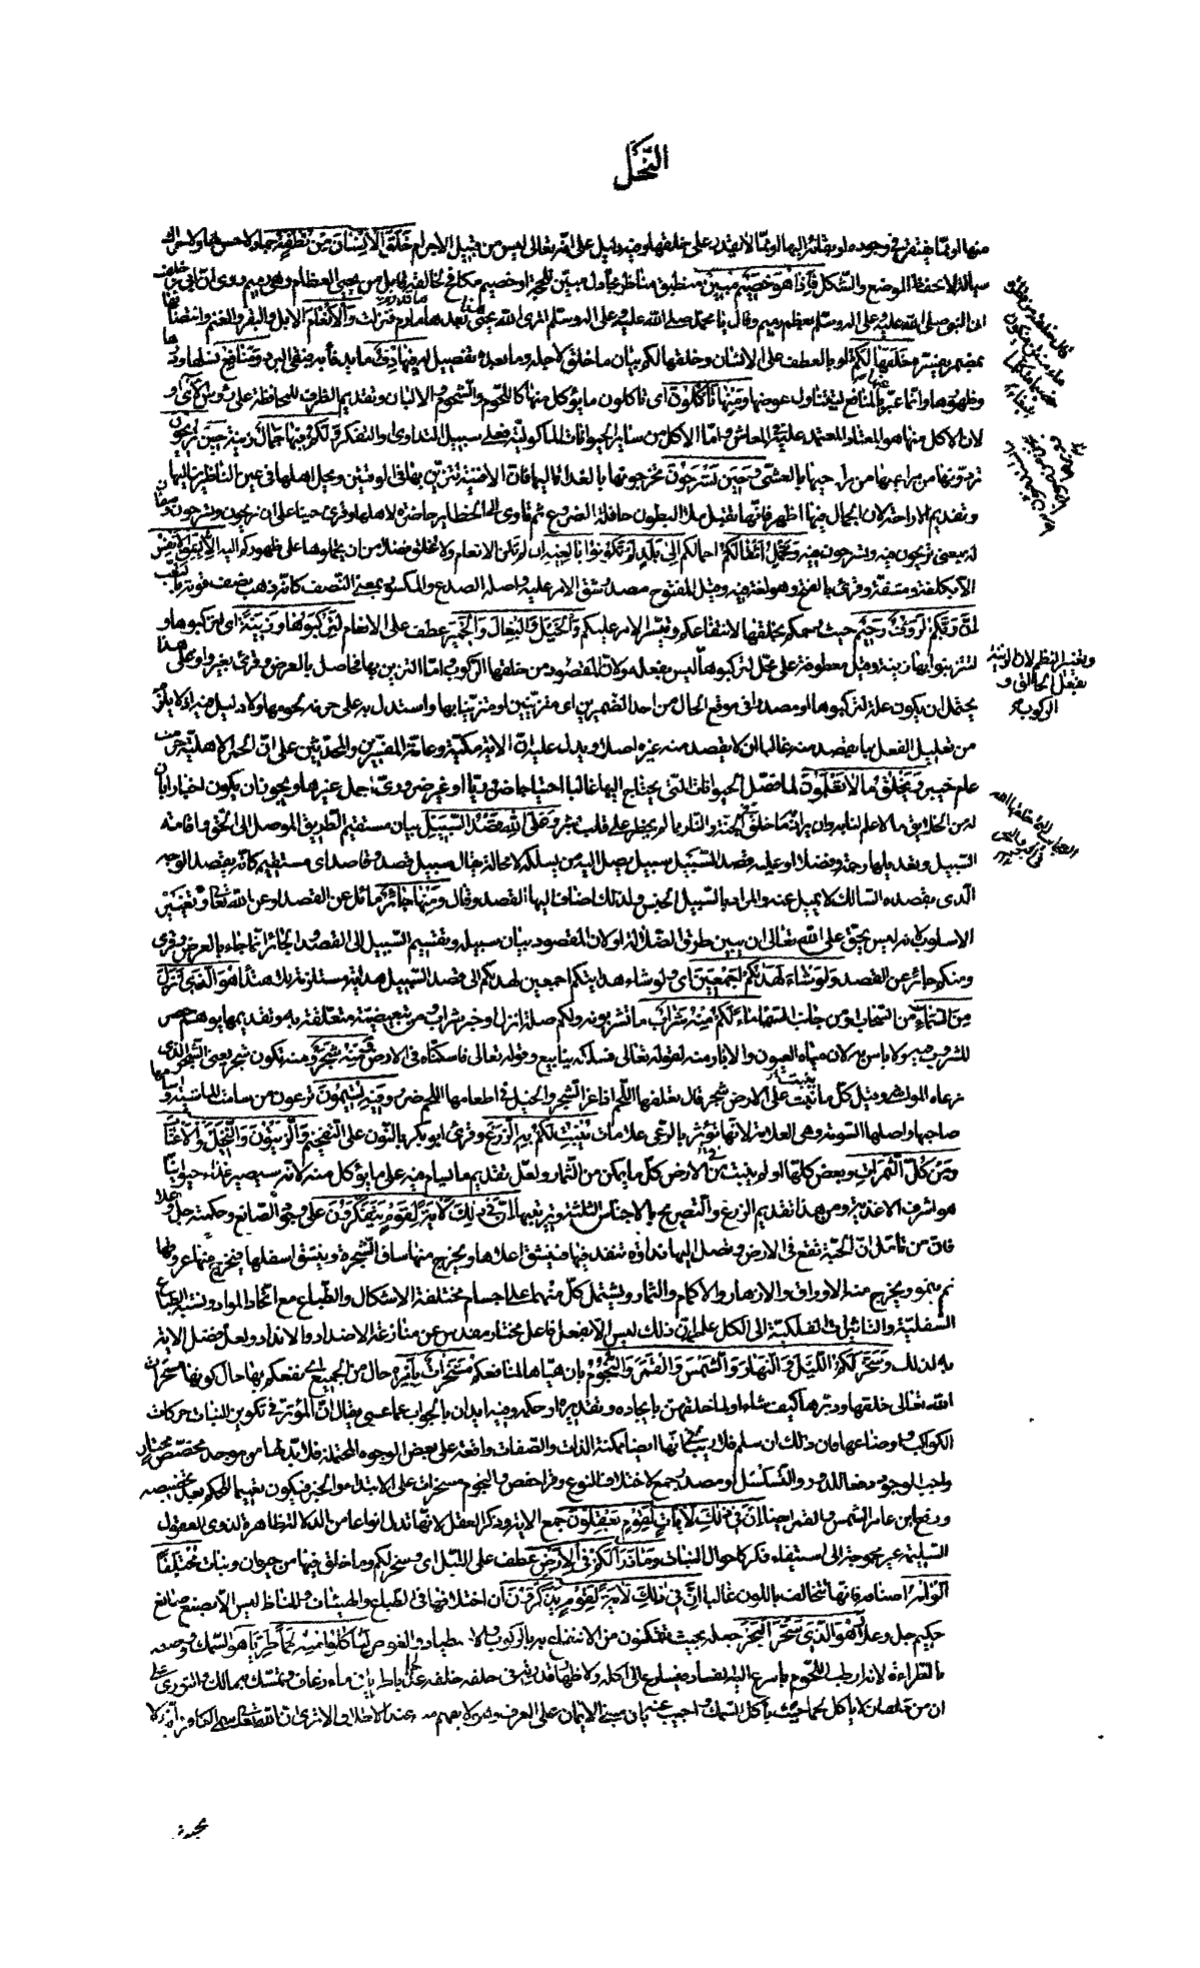 النحل
منها او مما يفتقر في وجوده او بقائه اليها او مما لا يقدر على خلقها وفيه دليل على انه تعالى ليس من قبيل الاجرام خلق الانسان من نطفة جماد لا حس بها ولا حراك
سيالة لا تحفظ الوضع والشكل فاذا هو خصيم مبين منطيق مناظر مجادل مبين للحجة او خصيم مكافح لخالقه قايل من يحيى العظام وهي رميم روى ان ابي بن خلف
اتى النبي صلى الله عليه وعلى اله وسلم بعظم رميم وقال يا محمد صلى الله عليه وعلى اله وسلم اترى الله يحيى هذا بعد ما قد رم فنزلت والانعام الابل والبقر والغنم وانتصابها
بمضمر يفسره خلقها لكم او بالعطف على الانسان وخلقها لكم بيان ما خلق لاجله وما بعده تفصيل له فيها دفء ما يدفأ به فيقي البرد ومنافع نسلها ودرها
وظهورها وانما عبر عنها بالمنافع ليتناول عوضها ومنها تأكلون اى تاكلون ما يؤكل منها كاللحوم والشحوم والالبان وتقديم الظرف للمحافظة على رؤس الآى او
لان الاكل منها هو المعتاد المعتمد عليه في المعاش واما الاكل من ساير الحيوانات المأكولة فعلى سبيل التداوى والتفكه ولكم فيها جمال زينة حين تريحون
تردونها من مراعيها الى مراحها بالعشي وحين تسرحون تخرجونها بالغداة الى المراعى فان الافنية تتزين بها في الوقتين ويجل اهلها في عين الناظرين اليها
وتقديم الاراحة لان الجمال فيها اظهر فانها تقبل ملاء البطون حافلة الضروع ثم تاوى الى الحظاير حاضرة لاهلها وقرئ حينا على ان تريحون وتسرحون وصفان
له بمعنى تريحون فيه وتسرحون فيه وتحمل اثقالكم احمالكم الى بلد لم تكونوا بالغيه ان لم تكن الانعام ولم تخلق فضلا من ان تحملوها على ظهوركم اليه الا بشق الانفس
الا بكلفة ومشقة وقرئ بالفتح وهو لغة فيه وقيل المفتوح مصدر شق الامر عليه واصله الصدع والمكسور بمعنى النصف كانه ذهب نصف قوته بالتعب
ان ربكم لرؤف رحيم حيث رحمكم بخلقها لانتفاعكم وتيسير الامر عليكم والخيل والبغال والحمير عطف على الانعام لتركبوها وزينة اى لتركبوها و
لتتزينوا بها زينة وقيل معطوفة على محل لتركبوها وتغيير النظم لان الزينة بفعل الخالق والركوب ليس بفعله ولان المقصود من خلقها الركوب واما التزين بها فحاصل بالعرض وقرئ بغير واو وعلى هذا
يحتمل ان يكون علة لتركبوها او مصدرا في موقع الحال من احد الضميرين اى متزينين او متزينا بها واستدل به على حرمة لحومها ولا دليل فيه اذ لا يلزم
من تعليل الفعل بما يقصد منه غالبا ان لا يقصد منه غيره اصلا ويدل عليه ان الاية مكية وعامة المفسرين والمحدثين على ان الحمر الاهلية حرمت
عام خيبر ويخلق ما لا تعلمون لما فصل الحيوانات التي يحتاج اليها غالبا احتياجا ضروريا او غير ضرورى اجمل غيرها ويجوز ان يكون اخبارا بان
له من الخلايق ما لا علم لنا به وان يراد به ما خلق في الجنة والنار مما لم يخطر على قلب بشر وعلى الله قصد السبيل بيان مستقيم الطريق الموصل الى الحق واقامة
السبيل وتعديلها رحمة وفضلا او عليه قصد السبيل يصل اليه من يسلكه لا محالة يقال سبيل قصد وقاصد اى مستقيم كانه يقصد الوجه
الذى يقصده السالك لا يميل عنه والمراد بالسبيل الجنس ولذلك اضاف اليها القصد وقال ومنها جائر مائل عن القصد او عن الله تعالى وتغيير
الاسلوب لانه ليس بحق على الله تعالى ان يبين طرق الضلالة او لان المقصود بيان سبيله وتقسيم السبيل الى القصد والجائر انما جاء بالعرض وقرئ
ومنكم جائر عن القصد ولو شاء لهداكم اجمعين اى ولو شاء هدايتكم اجمعين لهداكم الى قصد السبيل هداية مستلزمة للاهتداء هو الذى انزل
من السماء من السحاب او من جانب السماء ماء لكم منه شراب ما تشربونه ولكم صلة انزل او خبر شراب ومن تبعيضية متعلقة به وتقديمها يوهم حصر
المشروب فيه ولا باس به لان مياه العيون والابار منه لقوله تعالى فسلكه ينابيع وقوله تعالى فاسكناه في الارض ومنه شجر ومنه يكون شجر يعنى الشجر الذى
ترعاه المواشي وقيل كل ما ينبت على الارض شجر قال نعلفها اللحم اذا عز الشجر والخيل في اطعامها اللحم ضرر وفيه تسيمون ترعون من سامت الماشية واسامها
صاحبها واصلها السومة وهي العلامة لانها تؤثر بالرعي علامات ينبت لكم به الزرع وقرئ ابو بكر بالنون على التفخيم والزيتون والنخيل والاعناب
ومن كل الثمرات وبعض كلها اذ لم ينبت في الارض كل ما يمكن من الثمار ولعل تقديم ما يسام فيه على ما يؤكل منه لانه سيصير غذاء حيوانيا
هو اشرف الاغذية ومن هذا تقديم الزرع والتصريح بالاجناس الثلثة وترتيبها ان في ذلك لاية لقوم يتفكرون على وجود الصانع وحكمته جل وعلا
فان من تامل ان الحبة تقع في الارض وتصل اليها نداوة تنفذ فيها فينشق اعلاها ويخرج منها ساق الشجرة وينشق اسفلها فيخرج منها عروقها
ثم ينمو ويخرج منه الاوراق والازهار والاكمام والثمار ويشتمل كل منها على اجسام مختلفة الاشكال والطباع مع اتحاد المواد ونسبة الطبايع
السفلية والتاثيرات الفلكية الى الكل علم ان ذلك ليس الا بفعل فاعل مختار مقدس عن منازعة الاضداد والانداد ولعل فصل الاية
به لذلك وسخر لكم الليل والنهار والشمس والقمر والنجوم بان هيأها لمنافعكم مسخرات بامره حال من الجميع اى نفعكم بها حال كونها مسخرات
الله تعالى خلقها ودبرها كيف شاء او لما خلقن له بايجاده وتقديره او حكمه وفيه ايذان بالجواب عما عسى يقال ان المؤثر في تكوين النبات حركات
الكواكب واوضاعها فان ذلك ان سلم فلا ريب في انها ايضا ممكنة الذات والصفات واقعة على بعض الوجوه المحتملة فلا بد لها من موجد مخصص مختار
واجب الوجود دفعا للدور والتسلسل او مصدر جمع لاختلاف النوع وقرا حفص والنجوم مسخرات على الابتداء والخبر فيكون تعميما للحكم بعد تخصيصه
ورفع ابن عامر الشمس والقمر ايضا ان في ذلك لايات لقوم يعقلون جمع الاية وذكر العقل لانها تدل انواعا من الدلالة ظاهرة لذوى العقول
السليمة غير محوجة الى استيفاء فكر كاحوال النبات وما ذرأ لكم في الارض عطف على الليل اى وسخر لكم ما خلق فيها من حيوان ونبات مختلفا
الوانه اصنافه فانها تتخالف باللون غالبا ان في ذلك لاية لقوم يذكرون ان اختلافها في الطباع والهيئات والمناظر ليس الا بصنع صانع
حكيم جل وعلا وهو الذى سخر البحر جعله بحيث تتمكنون من الانتفاع به بالركوب والاصطياد والغوص لتاكلوا منه لحما طريا هو السمك ووصفه
بالطراوة لانه ارطب اللحوم يسرع اليه الفساد فيسارع الى اكله ولاظهار قدرته في خلقه عذبا طريا في ماء زعاف وتمسك به مالك والثورى على
ان من حلف ان لا ياكل لحما حنث باكل السمك واجيب عنه بان مبنى الايمان على العرف وهو لا يفهم منه عند الاطلاق الا ترى ان الله تعالى سمى الكافر دابة ولا